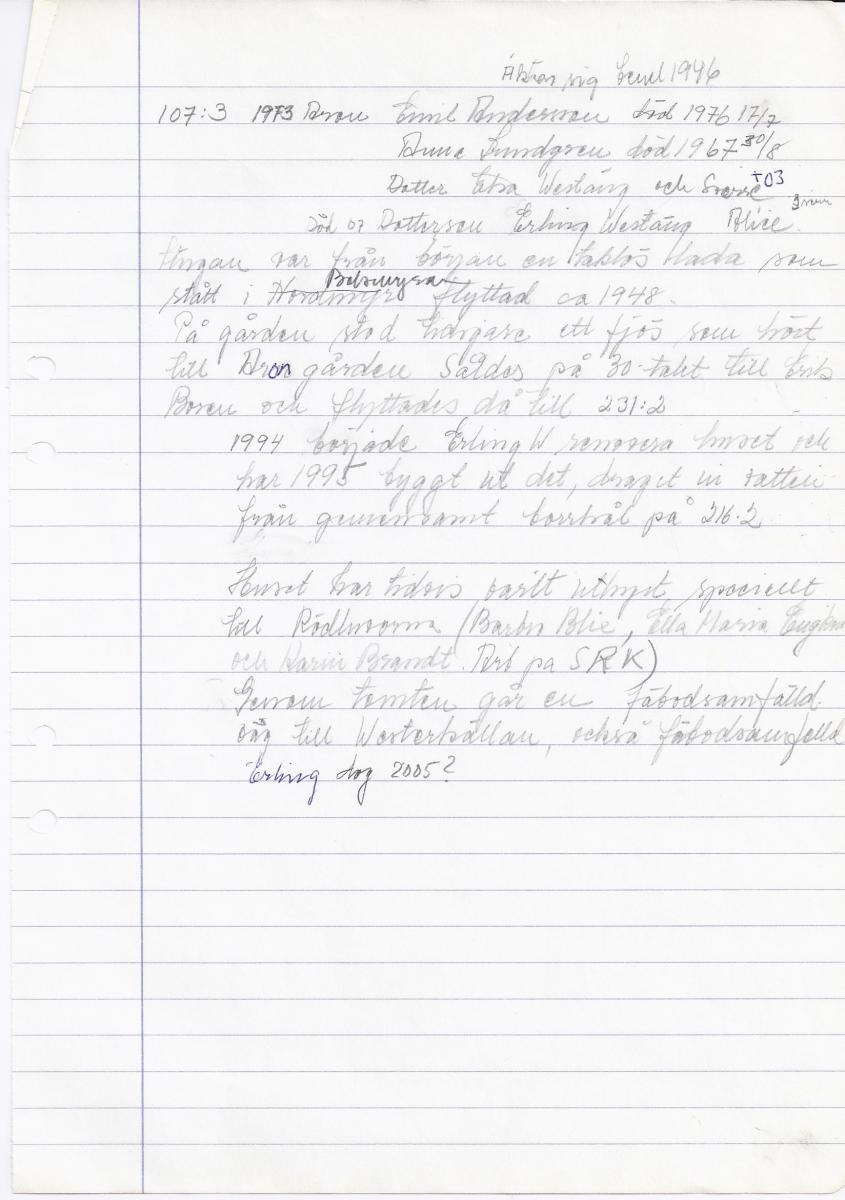 sig 1946
107:3 1973 Aron Emil Andersson död 1976 17/7
Anna Lundgren död 1967 30/8
Dotter Elsa Westäng och +03
död 07 Dotterson Erling Westäng Alice
Stugan var från början en taklös lada som
stått i Nordmyr Bölsmyran flyttad ca 1948.
På gården stod längare ett fjös som hört
till Aron gården Såldes på 30-talet till Erik
Boren och flyttades då till 231:2
1994 började Erling W renovera huset och
har 1995 byggt ut det, draget in vatten
från gemensamt borrhål på 216:2
Huset har tidvis varit uthyrt speciellt
till Rödluvorna (Barbro Blie, Ella Maria
och Karin Brandt. Arb på SRK)
Genom tomten går en fäbodsamfälld
väg till Westerkällan, också fäbodsamfälld
Erling dog 2005?